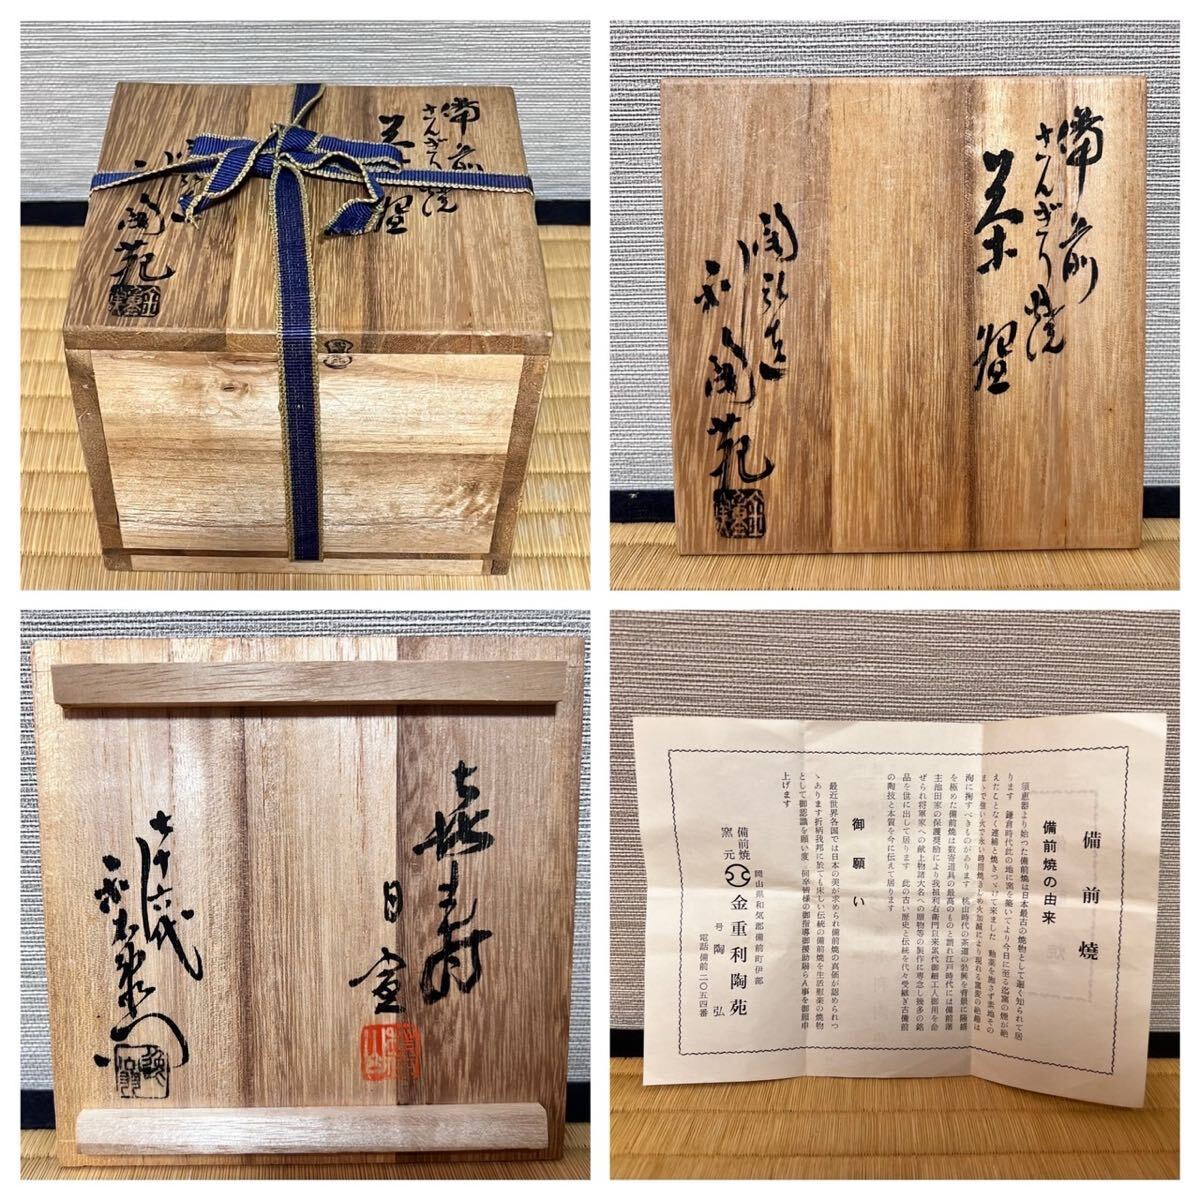 備前
さんぎり焼
茶碗
陶弘造
利陶苑
備前
さんぎり焼
茶碗
陶弘造
利陶苑
七十六代
日宣
備前燒
備前焼の由来
須恵器より始つた備前焼は日本最古の焼物として遍く知られて居
ります 鎌倉時代此の地に窯を築いてより今日に至る迄窯の煙が絶
えたことなく連綿と焼きつゞけて来ました 釉薬を施さず素地その
まゝで強い火で永い時間焼きしめ火加減により現れる窯変の絶趣は
洵に掬すべきものがあります 桃山時代の茶道の勃興を背景に隆盛
を極めた備前焼は数寄道具の最高のものと謂れ江戸時代には備前藩
主池田家の保護奨励により我祖利右衛門以来累代御細工人御用を命
ぜられ将軍家への献上物諸大名への贈物等の製作に専念し幾多の銘
品を世に出して居ります 此の古い歴史と伝統を代々受継ぎ古備前
の陶技と本質を今に伝えて居ります
御願い
最近世界各国では日本の美が求められ備前焼の真価が認められつ
ゝあります折柄我邦に於ても床しい伝統の備前焼を生活慰楽の焼物
として御認識を願い度 何卒皆様の御指導御援助賜らん事を御願申
上げます
岡山県和気郡備前町伊部
備前焼
窯元
金重利陶苑
号 陶弘
電話備前二〇五四番